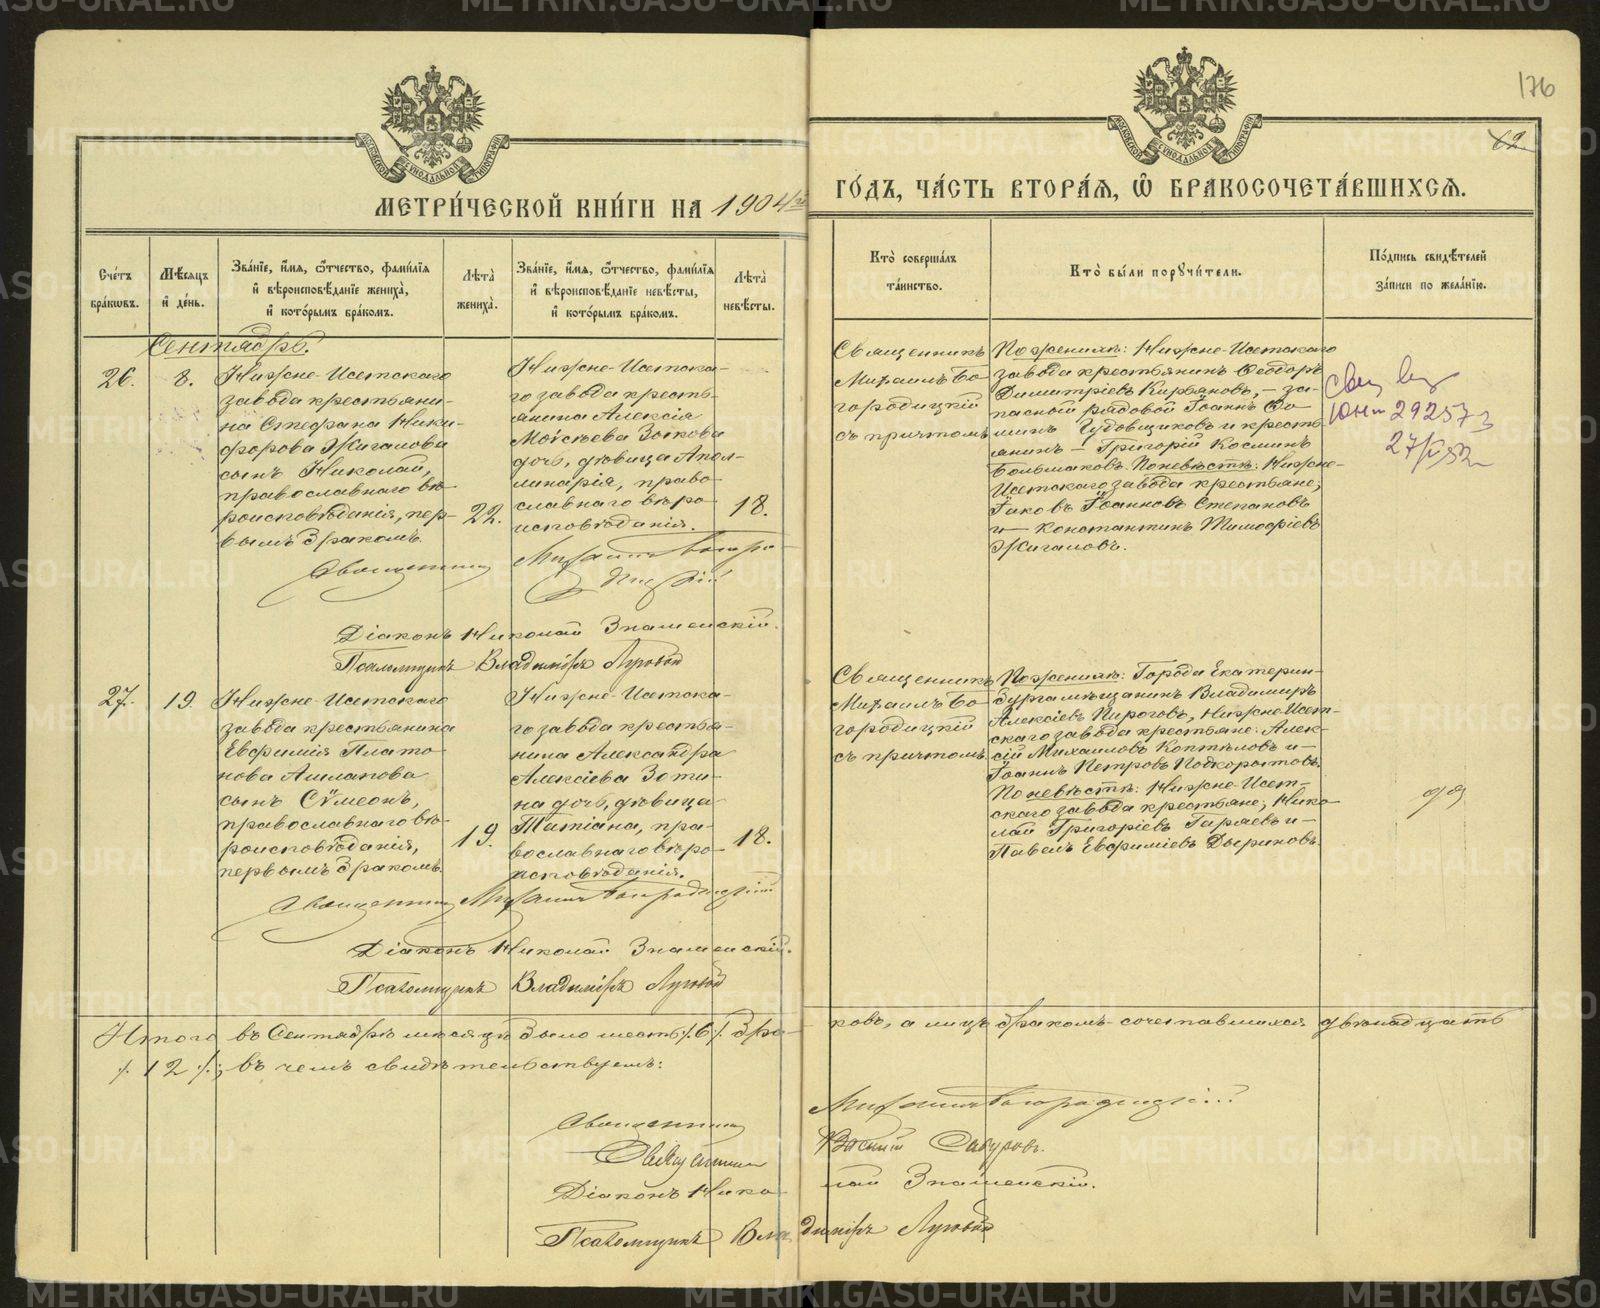 176
62
МЕТРИ́ЧЕСКОЙ КНИ́ГИ НА 1904 й
ГО́ДЪ, ЧА́СТЬ ВТОРА́Я, Ѿ БРАКОСОЧЕТА́ВШИХСЯ.
Сче́тъ бра́ковъ.
Мѣ́сяцъ и҆ де́нь.
Зва́нїе, и҆́мя, ѻ҆́тчество, фами́лїя и҆ вѣроисповѣ́данїе жениха̀, и҆ кото́рымъ бра́комъ.
Лѣта̀ жениха̀.
Зва́нїе, и҆́мя, ѻ҆́тчество, фами́лїя и҆ вѣроисповѣ́данїе невѣ́сты, и҆ кото́рымъ бра́комъ.
Лѣта̀ невѣ́сты.
Кто̀ соверша́лъ та́инство.
Кто̀ бы́ли порꙋчи́тели.
По́дпись свидѣ́телей за́писи по жела́нїю.
Сентябрь.
26.
8.
Нижне-Исетскаго
завода крестьяни-
на Стефана Ники-
форова Жигалова
сынъ Николай,
православнаго вѣ-
роисповѣданія, пер-
вымъ бракомъ.
22.
Нижне-Исетска-
го завода кресть-
янина Алексія
Моѵсѣева Зоткова
дочь, дѣвица Апол-
линарія, право-
славнаго вѣро-
исповѣданія.
18.
Священникъ
Михаилъ Бо-
городицкій
съ причтомъ
По женихѣ: Нижне-Исетскаго
завода крестьянинъ Ѳеодоръ
Димитріевъ Кирьяновъ, – за-
пасной рядовой Іоаннъ Ѳо-
минъ Чудовщиковъ и кресть-
янинъ – Григорій Косминъ
Большаковъ. По невѣстѣ: Нижне-
Исетскаго завода крестьяне;
Іаковъ Іоанновъ Степановъ
и – Константинъ Тимоѳіевъ
Жигаловъ.
292573
Священникъ Михаилъ Богоро-
дицкій
Діаконъ Николай Знаменскій.
Псаломщикъ Владиміръ Луговой
27.
19.
Нижне-Исетскаго
завода крестьянина
Евѳимія Плато-
нова Ашлапова
сынъ Сѵмеонъ,
православнаго вѣ-
роисповѣданія,
первымъ бракомъ.
19.
Нижне-Исетска-
го завода крестья-
нина Александра
Алексіева Зоти-
на дочь, дѣвица
Татіана, пра-
вославнаго вѣро-
исповѣданія.
18.
Священникъ
Михаилъ Бо-
городицкій
съ причтомъ.
По женихѣ: Города Екатерин-
бурга мѣщанинъ Владимиръ
Алексіевъ Пироговъ, Нижне-Исет-
скаго завода крестьяне: Алек-
сій Михаиловъ Коптѣловъ и –
Іоаннъ Петровъ Подкорытовъ.
По невѣстѣ: Нижне-Исет-
скаго завода крестьяне; Нико-
лай Григоріевъ Гиряевъ и –
Павелъ Евѳиміевъ Дыриновъ.
Священникъ Михаилъ Богородицкій
Діаконъ Николай Знаменскій.
Псаломщикъ Владиміръ Луговой
Итого въ Сентябрѣ мѣсяцѣ было шесть /.6/. бра-
ковъ, а лицъ бракомъ сочетавшихся двѣнадцать
/.12/.; въ чемъ свидѣтельствуемъ:
Священникъ Михаилъ Богородицкій
Священникъ Василий Сабуровъ.
Діаконъ Николай Знаменскій.
Псаломщикъ Владиміръ Луговой
METRIKI.GASO-URAL.RU